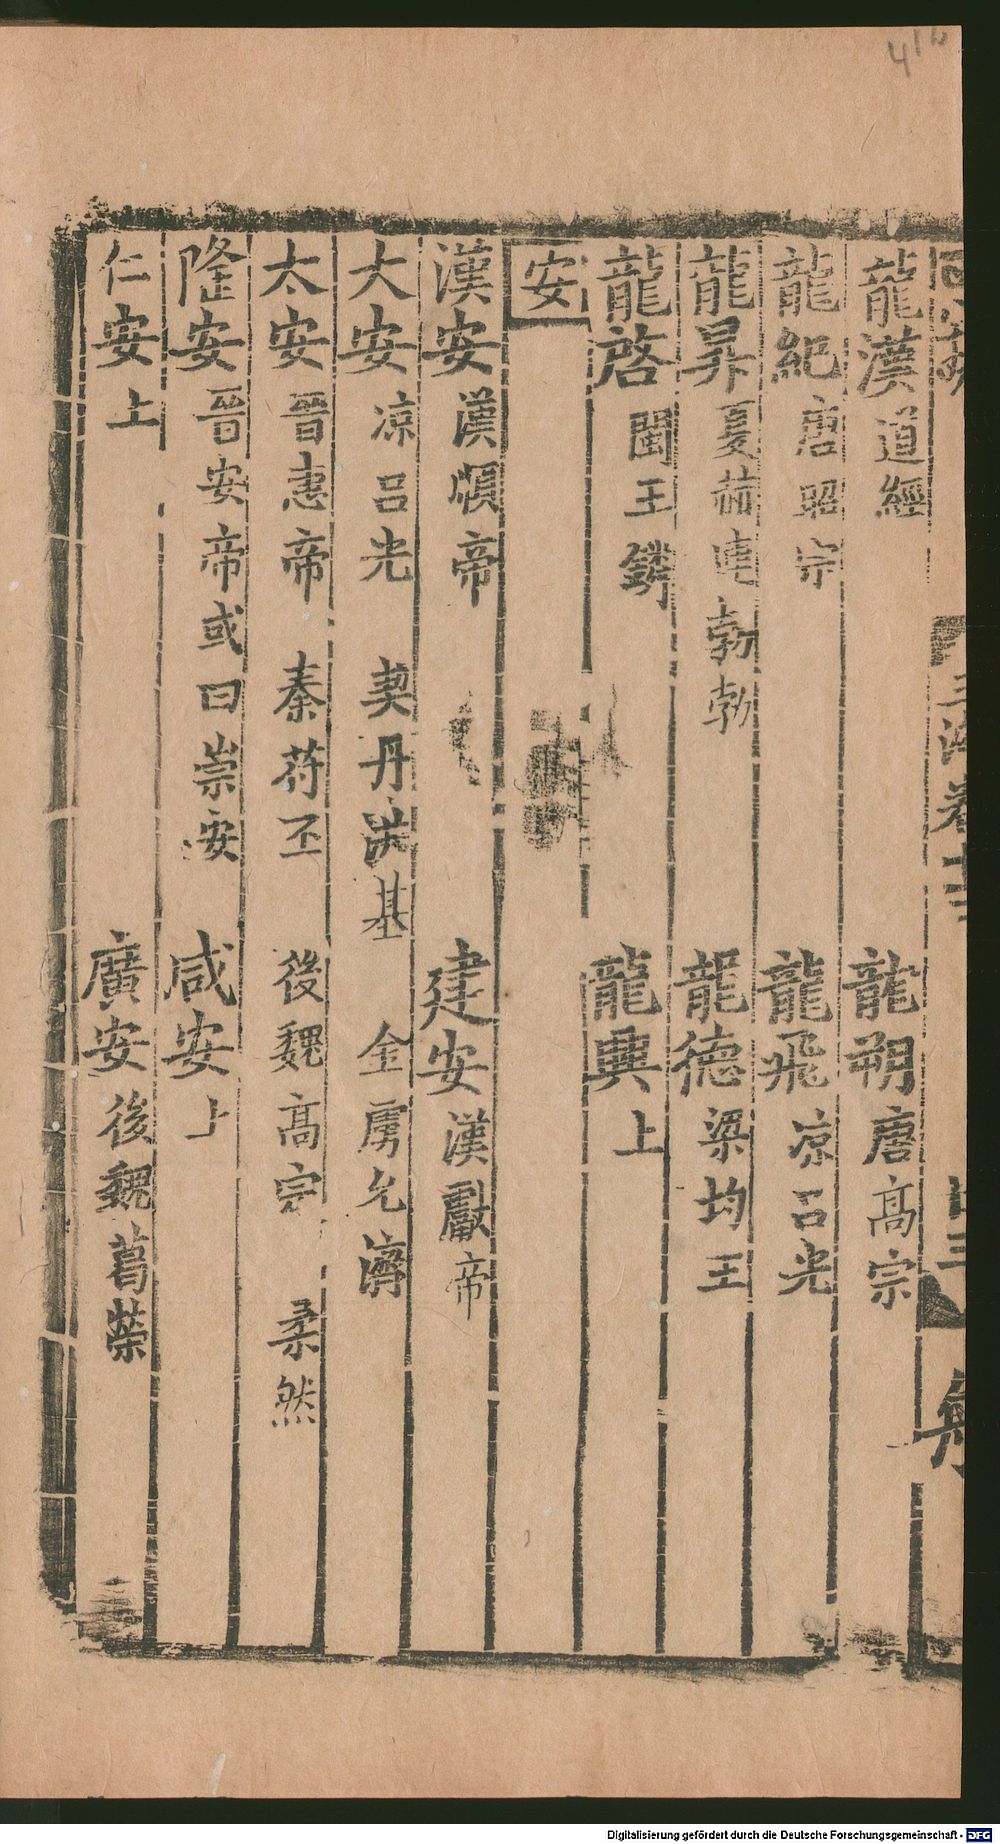 龍漢 道經 龍朔 唐高宗
龍紀 唐昭宗 龍飛 涼呂光
龍昇 夏赫連勃勃 龍德 梁均王
龍啓 閩王鏻 龍興 上
安
漢安 漢順帝 建安 漢獻帝
大安 涼呂光 契丹洪基 金虜允濟
太安 晉惠帝 秦苻丕 後魏高宗 柔然
隆安 晉安帝或曰崇安 咸安 上
仁安 上 廣安 後魏葛榮
41b
Digitalisierung gefördert durch die Deutsche Forschungsgemeinschaft - DFG